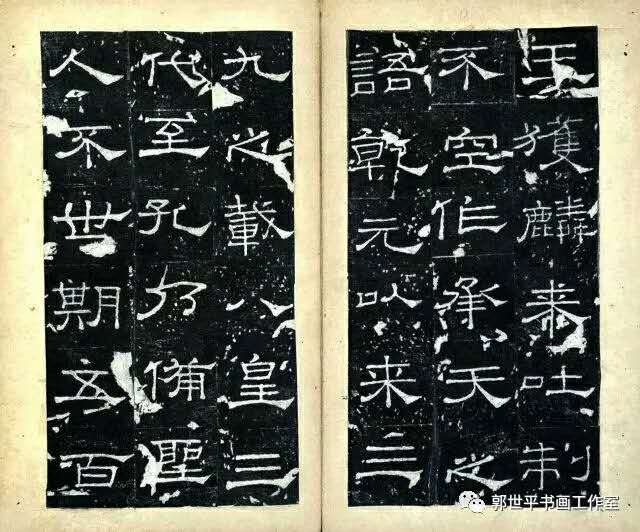 王獲麟来吐制
不空作承天之
語乾元以来三
九之載八皇三
代至孔乃備聖
人不世期五百
郭世平书画工作室